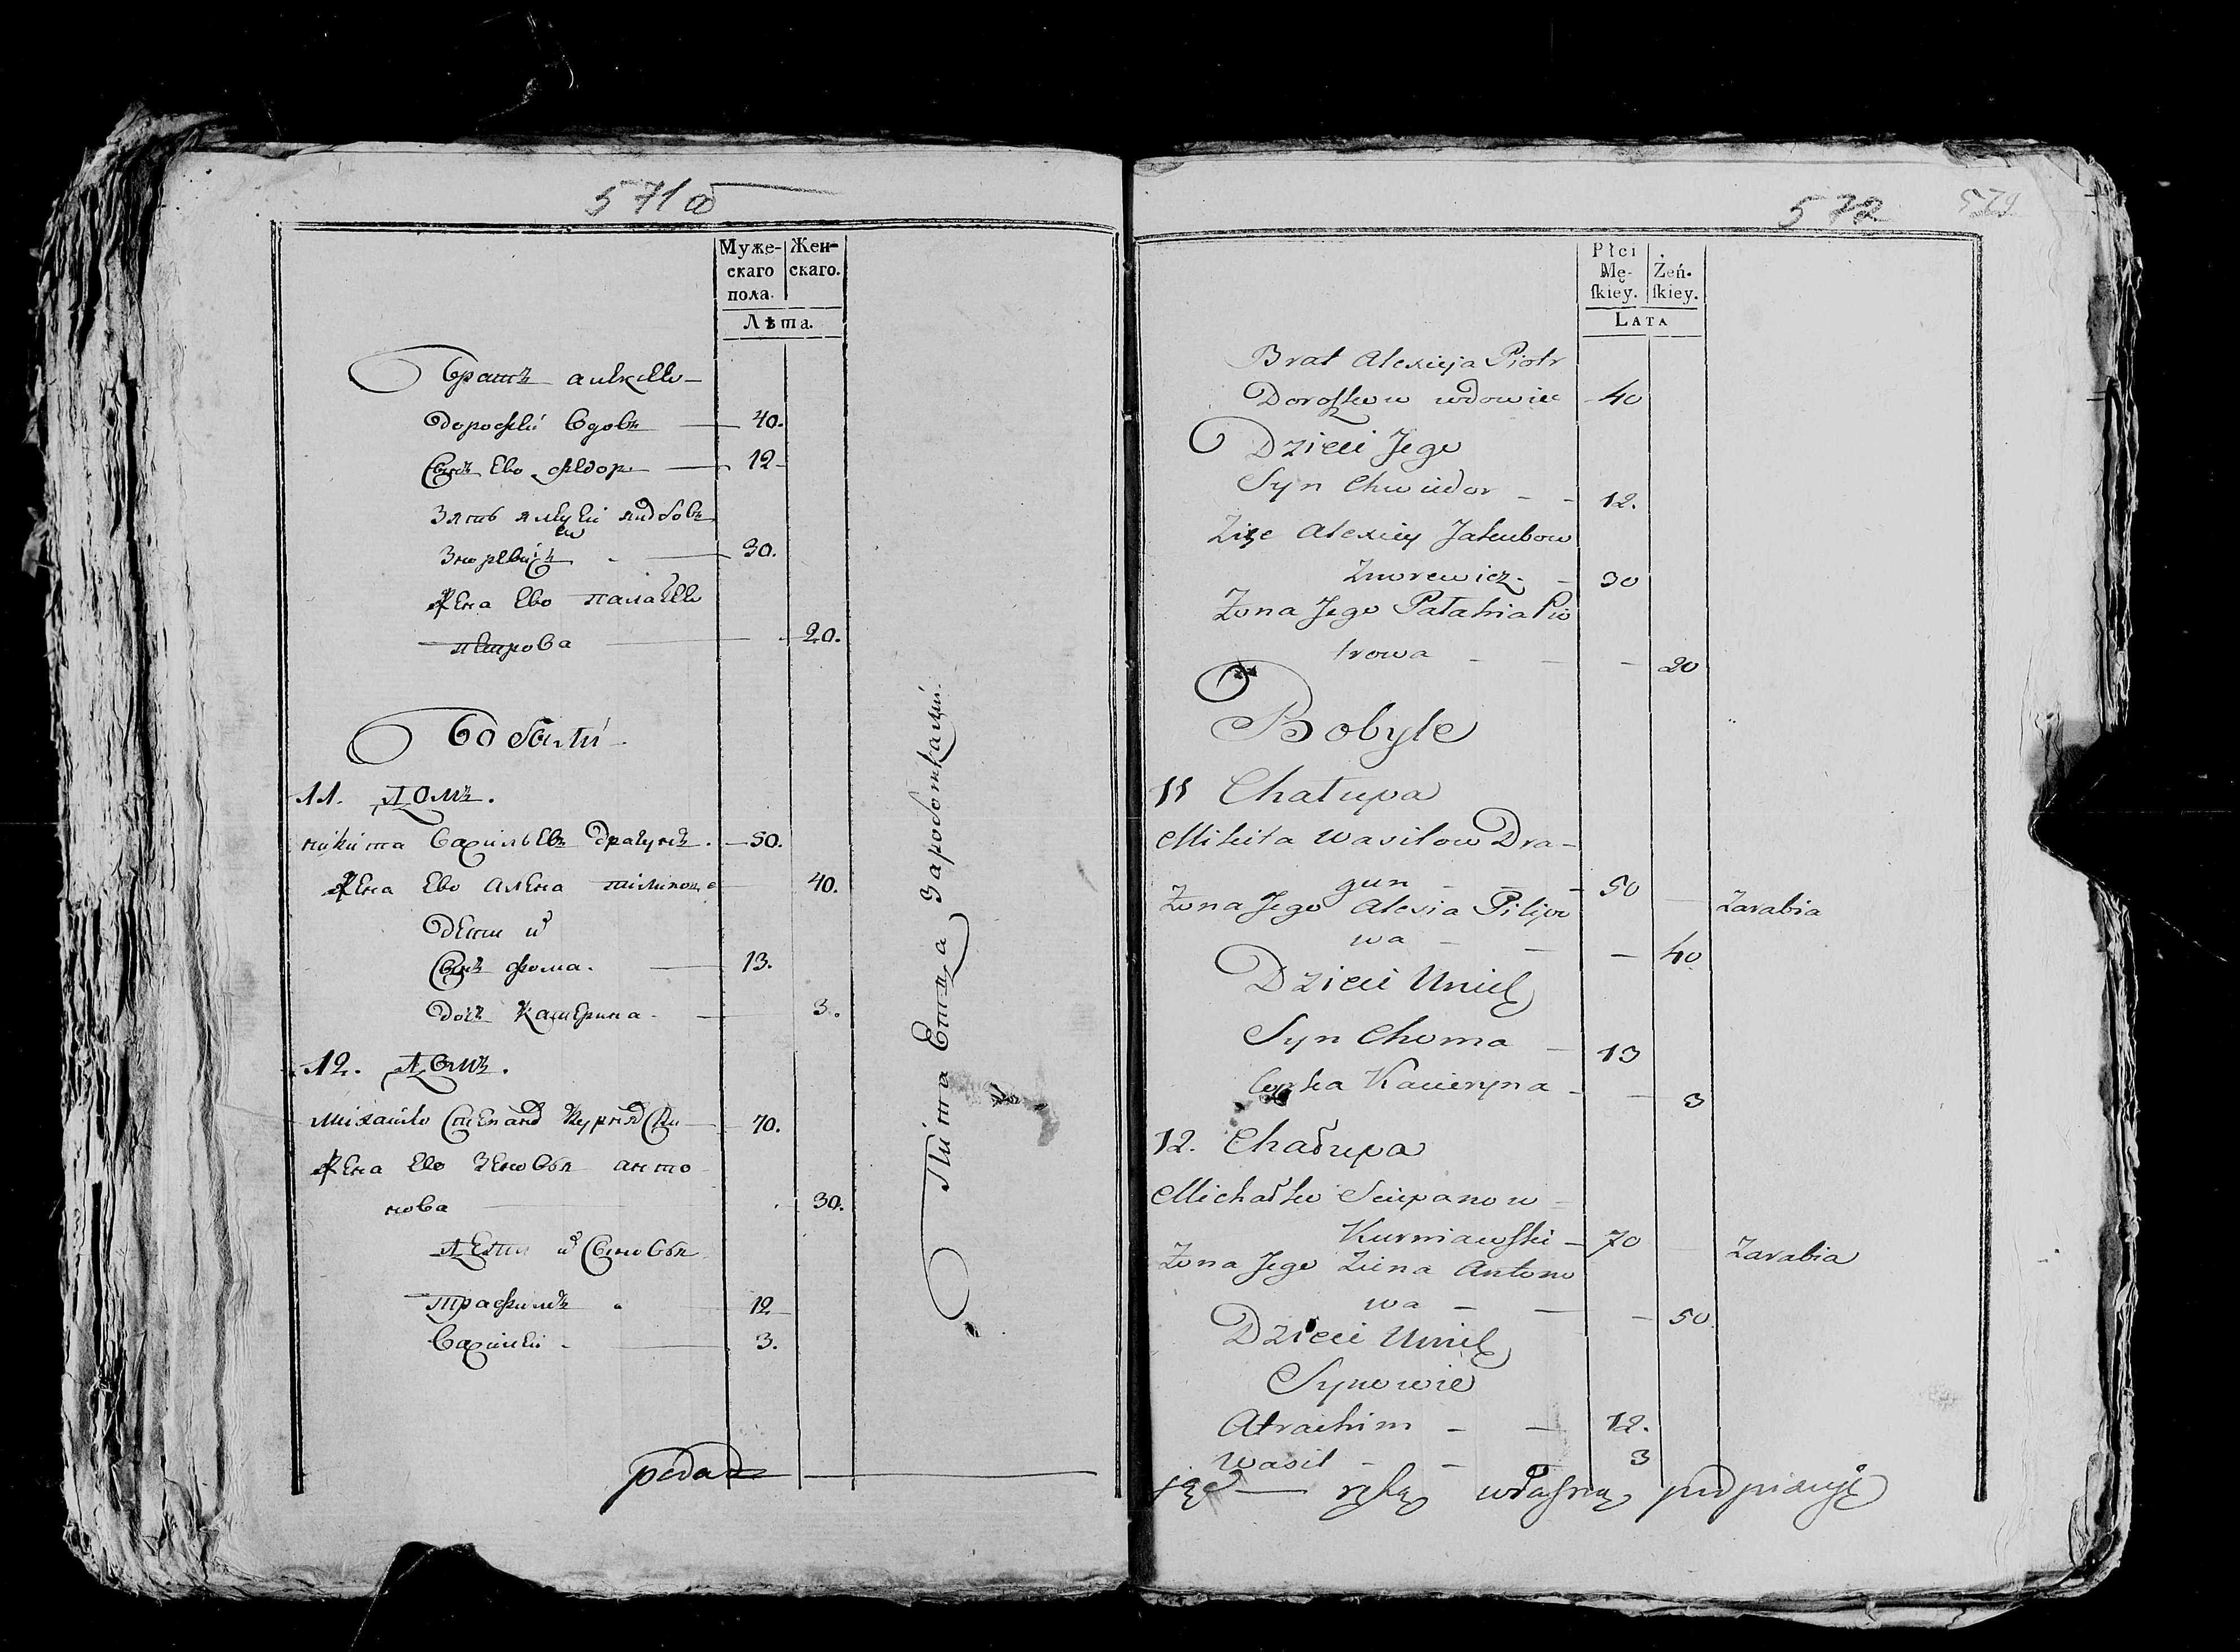 571 об
Муже-
скаго
пола.
Жен-
скаго.
Лѣта.
Братъ алексея
дорофеи вдовъ 40.
Сынъ Ево федор 12
Зять алеѯеи
Зноревичъ 30.
Жена Ево палагея
петрова 20.
Бобыли
11. Домъ.
никита Васильевъ драгунъ. 50.
Жена Ево алена 40.
дети их
Сынъ фома. 13.
дочъ Катерина. 3.
12. Домъ.
михаило Степанов 70.
Жена Ево Зеновья анто
нова 30.
Дети их Сыновья
Трафимъ 12
Василеи 3.
заработками.
podad
572
579
Płci
Mę-
ſkiey.
Żeń-
ſkiey.
LATA
Brat Alexieja Piotr
Doroſzkow wdowiec 40
Dzieci Jego
Syn Chwiedor 12.
Zięc Alexiey Jakubow
Znorewicz. 30
Zona Jego Pałahia Pio
trowa 20
Bobyle
11 Chałupa
Mikita Wasilow Dra-
gun 50
Zarabia
Zona Jego Alexia Pilipo
wa 40
Dzieci Unich
Syn Choma 13
Corka Kacieryna 3
12. Chałupa
Michałko Sciepanow
Kurniawſki 70
Zarabia
Zona Jego Ziena Antono
wa 50
Dzieci Unich
Synowie
Atrachim 12.
Wasil 3
jąc ręką własną podpisuję